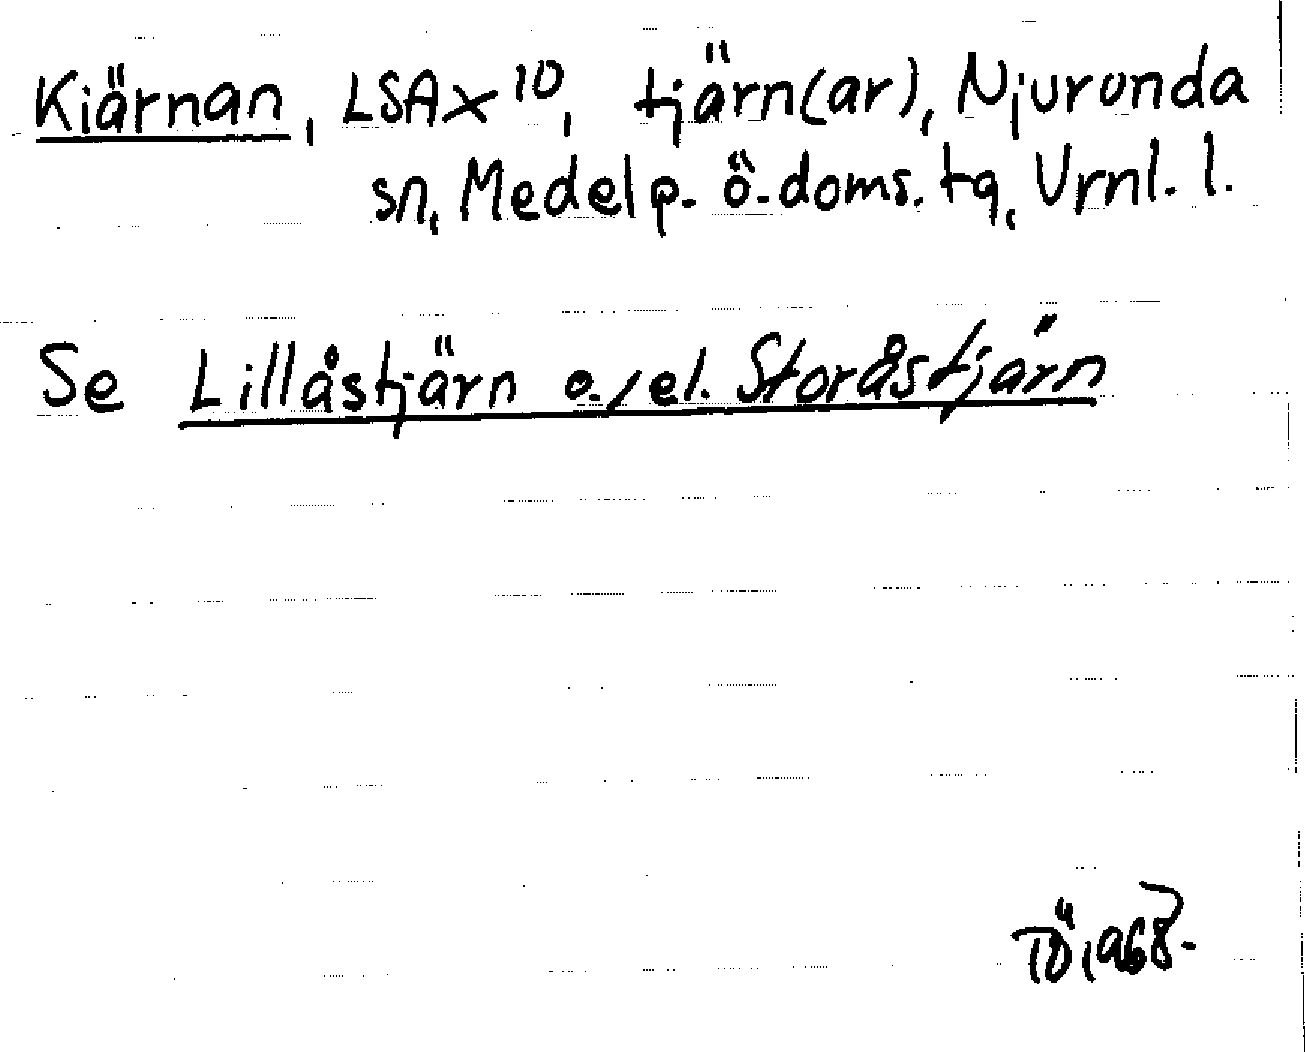 Kiärnan, LSA X 10, tjärn(ar), Njurunda
sn, Medelp. ö. doms. tg, Vrnl. l.
Se Lillåstjärn o./el. Storåstjärn
TÖ, 1968.